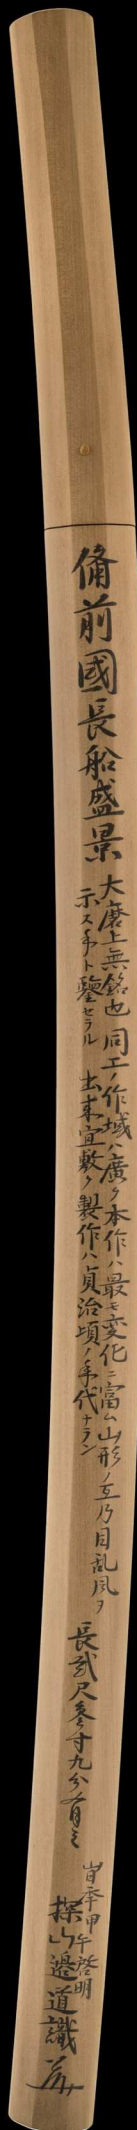 備前國長船盛景
大磨上無銘也 同工ノ作域ハ廣ク本作ハ最モ変化ニ富ム山形ノ互乃目乱風ヲ
示ス手ト鑒セラル 出来宜敷ク製作ハ貞治頃ノ年代ナラン
長貳尺参寸九分有之
岩甲午啓明
探山邉道識